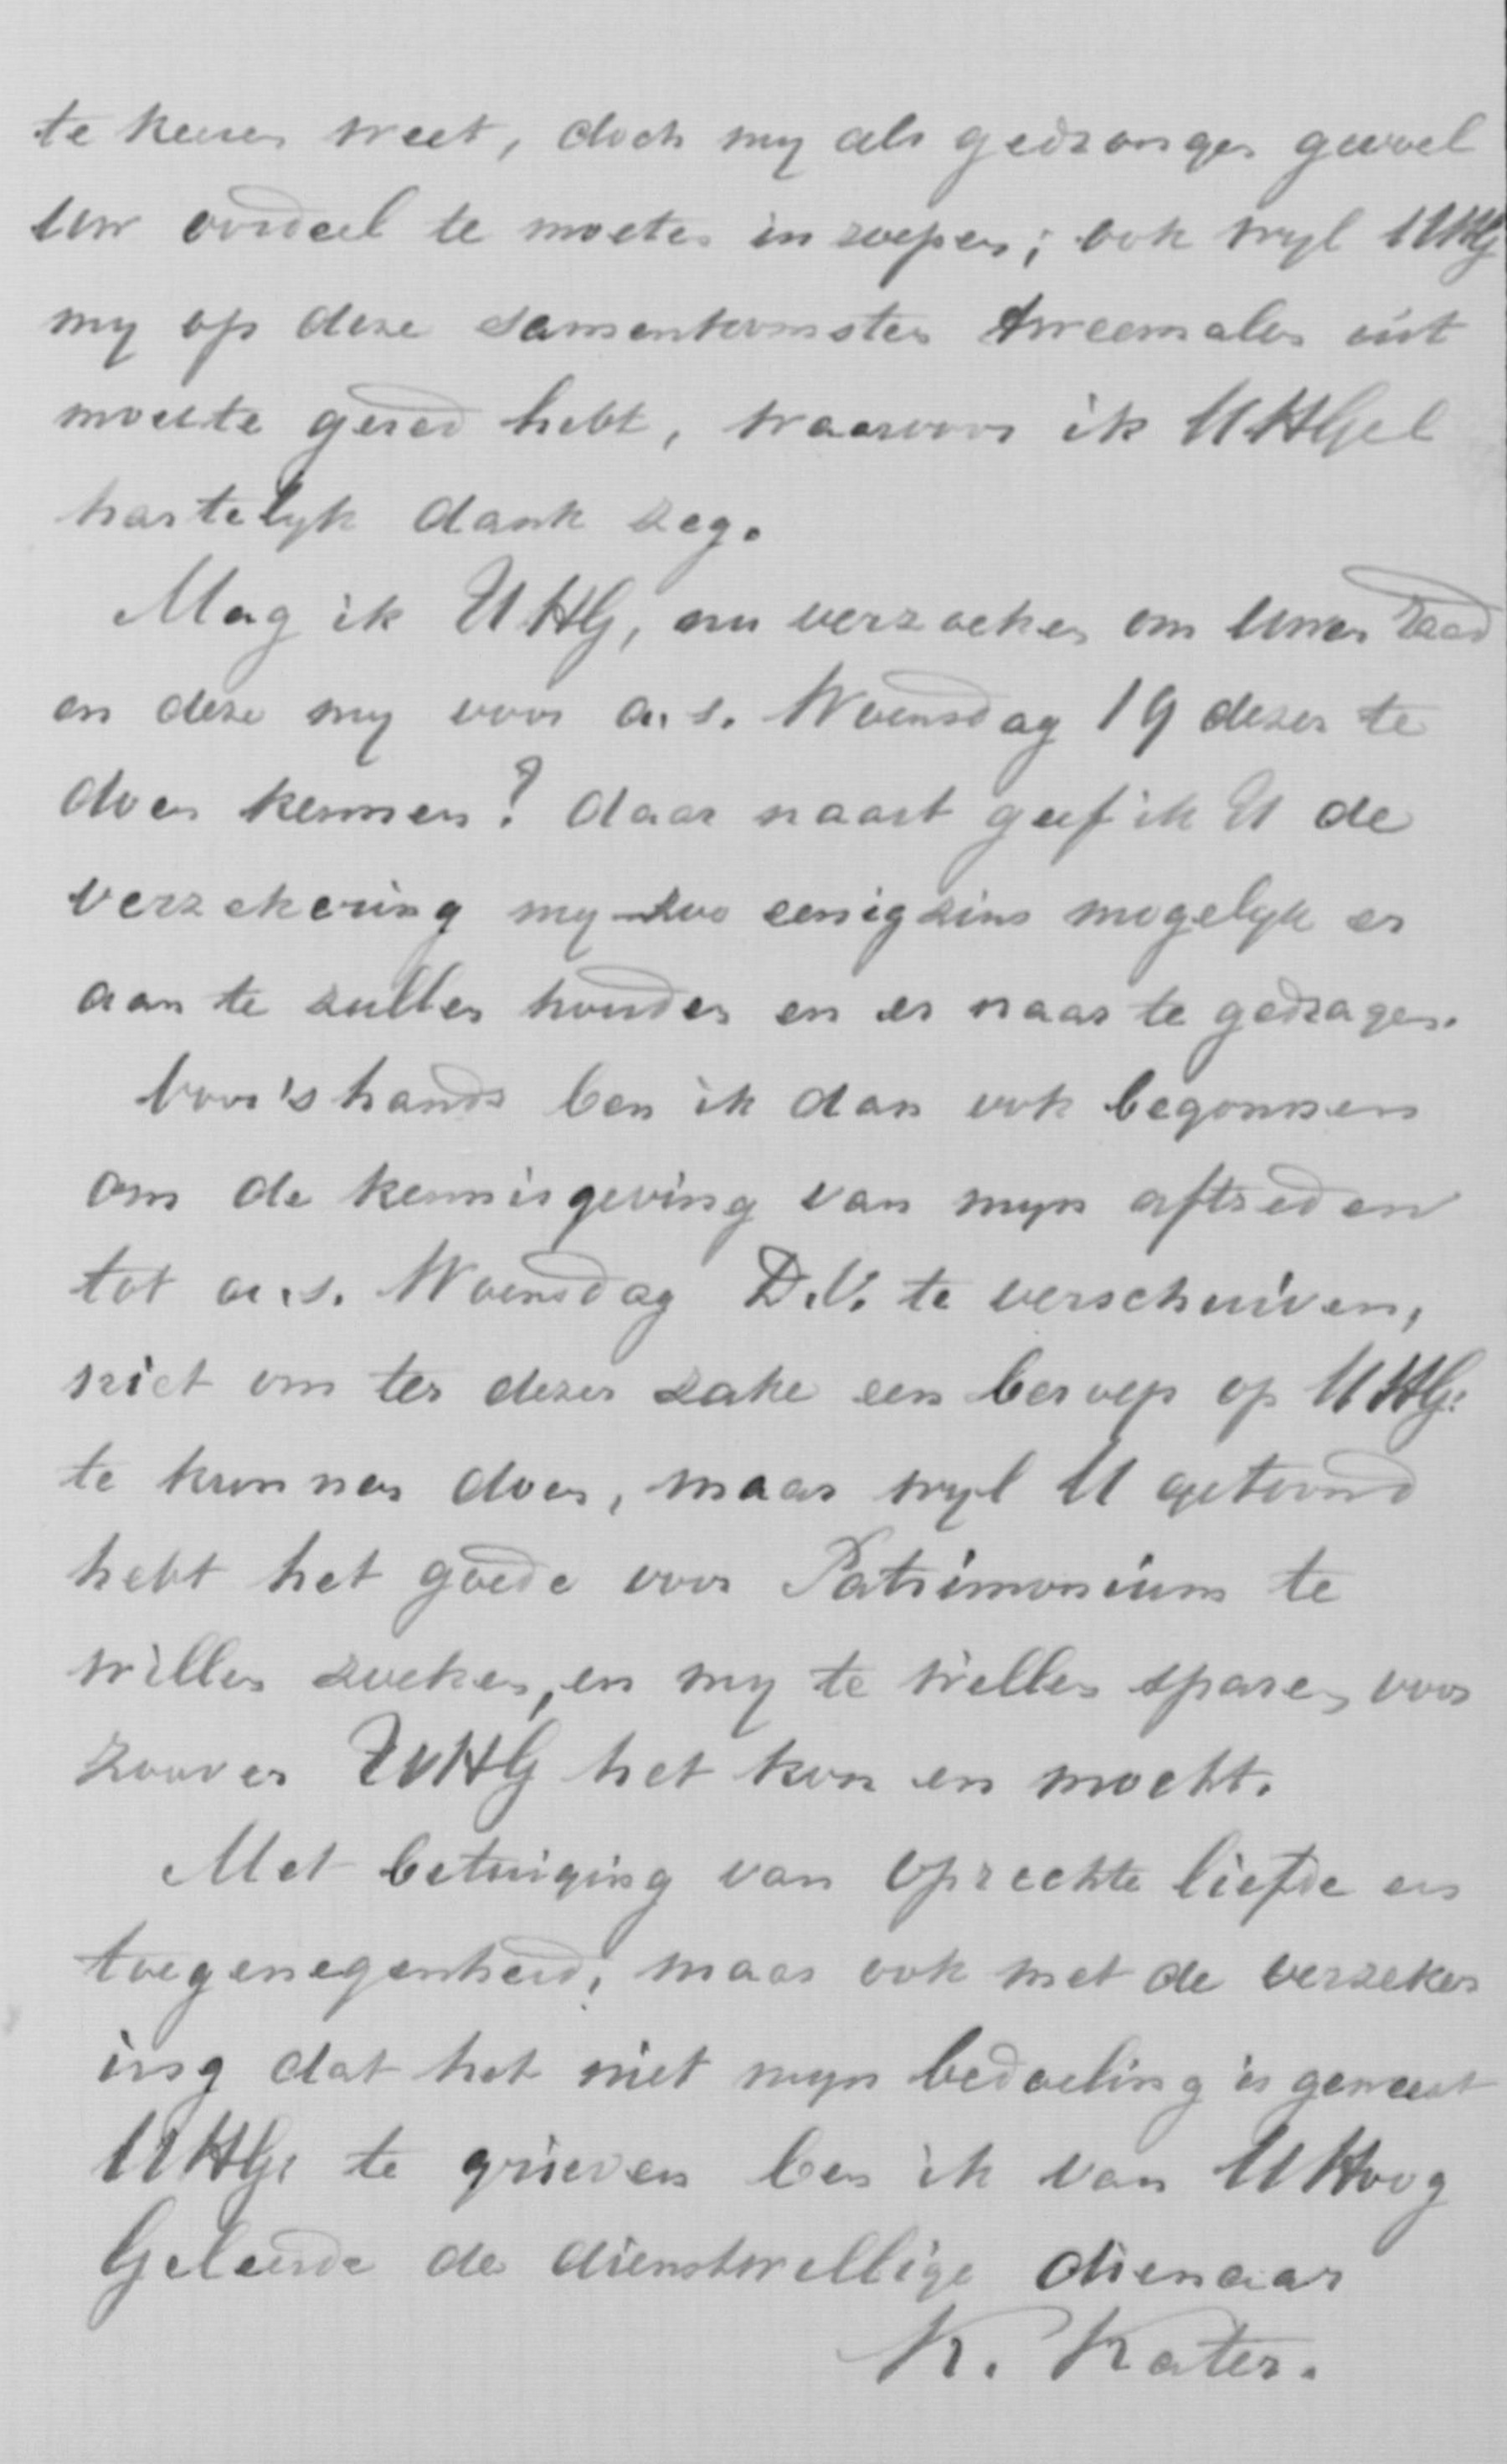 te keuren weet, doch my als gedrongen gevoel
Uw oordeel te moeten inroepen; ook wyl UHG
my op deze samenkomsten tweemalen uit
moeite gered hebt, waarvoor ik UHGel
hartelyk dank zeg.
Mag ik UHG, nu verzoeken om Uwen raad
en deze my voor a.s. Woensdag 19 dezer te
doen kennen? daar naast geef ik U de
verzekering my zoo eenigzins mogelyk er
aan te zullen houden en er naar te gedragen.
Voor's hands ben ik dan ook begonnen
om de kennisgeving van myn aftreden
tot a.s. Woensdag D.V. te verschuiven,
niet om ter dezer zake een beroep op UHG.
te kunnen doen, maar wyl U getoond
hebt het goede voor Patrimonium te
willen zoeken, en my te willen sparen, voor
zoover UHG het kon en mocht.
Met betuiging van oprechte liefde en
toegenegenheid, maar ook met de verzeker
ing dat het niet myn bedoeling is geweest
UHG. te grieven ben ik van UHoog
Geleerde de dienstwillige dienaar
K. Kater.